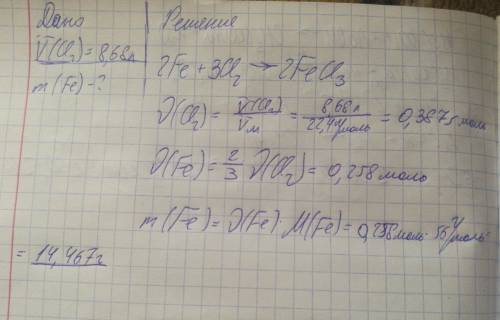 Дано
Решение
V(Cl₂)=8,68л
m(Fe)-?
2Fe+3Cl₂→2FeCl₃
ϑ(Cl₂)=V(Cl₂)/Vм=8,68л/22,4л/моль=0,3875моль
ϑ(Fe)=2/3ϑ(Cl₂)=0,258моль
m(Fe)=ϑ(Fe)·M(Fe)=0,258моль·56г/моль=
=14,467г